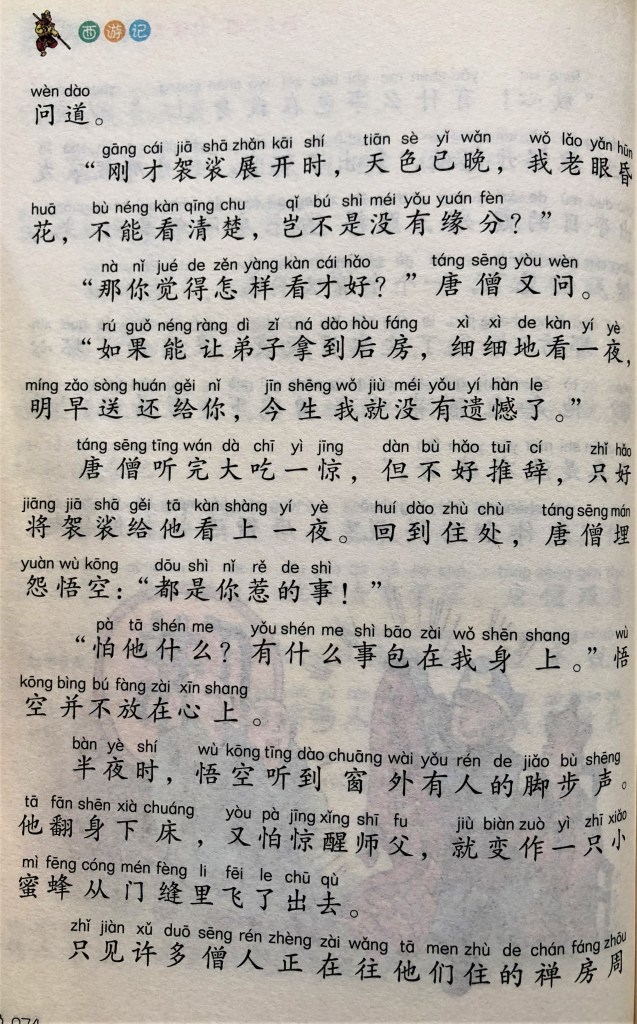 西游记
wèn dào
问道。
gāng cái jiā shā zhǎn kāi shí tiān sè yǐ wǎn wǒ lǎo yǎn hūn
“刚才袈裟展开时，天色已晚，我老眼昏
huā bù néng kàn qīng chu qǐ bú shì méi yǒu yuán fèn
花，不能看清楚，岂不是没有缘分？”
nà nǐ jué de zěn yàng kàn cái hǎo táng sēng yòu wèn
“那你觉得怎样看才好？”唐僧又问。
rú guǒ néng ràng dì zǐ ná dào hòu fáng xì xì de kàn yí yè
“如果能让弟子拿到后房，细细地看一夜，
míng zǎo sòng huán gěi nǐ jīn shēng wǒ jiù méi yǒu yí hàn le
明早送还给你，今生我就没有遗憾了。”
táng sēng tīng wán dà chī yì jīng dàn bù hǎo tuī cí zhǐ hǎo
唐僧听完大吃一惊，但不好推辞，只好
jiāng jiā shā gěi tā kàn shàng yí yè huí dào zhù chù táng sēng mán
将袈裟给他看上一夜。回到住处，唐僧埋
yuàn wù kōng dōu shì nǐ rě de shì
怨悟空：“都是你惹的事！”
pà tā shén me yǒu shén me shì bāo zài wǒ shēn shang wù
“怕他什么？有什么事包在我身上。”悟
kōng bìng bú fàng zài xīn shang
空并不放在心上。
bàn yè shí wù kōng tīng dào chuāng wài yǒu rén de jiǎo bù shēng
半夜时，悟空听到窗外有人的脚步声。
tā fān shēn xià chuáng yòu pà jīng xǐng shī fu jiù biàn zuò yì zhī xiǎo
他翻身下床，又怕惊醒师父，就变作一只小
mì fēng cóng mén fèng li fēi le chū qù
蜜蜂从门缝里飞了出去。
zhǐ jiàn xǔ duō sēng rén zhèng zài wǎng tā men zhù de chán fáng zhōu
只见许多僧人正在往他们住的禅房周